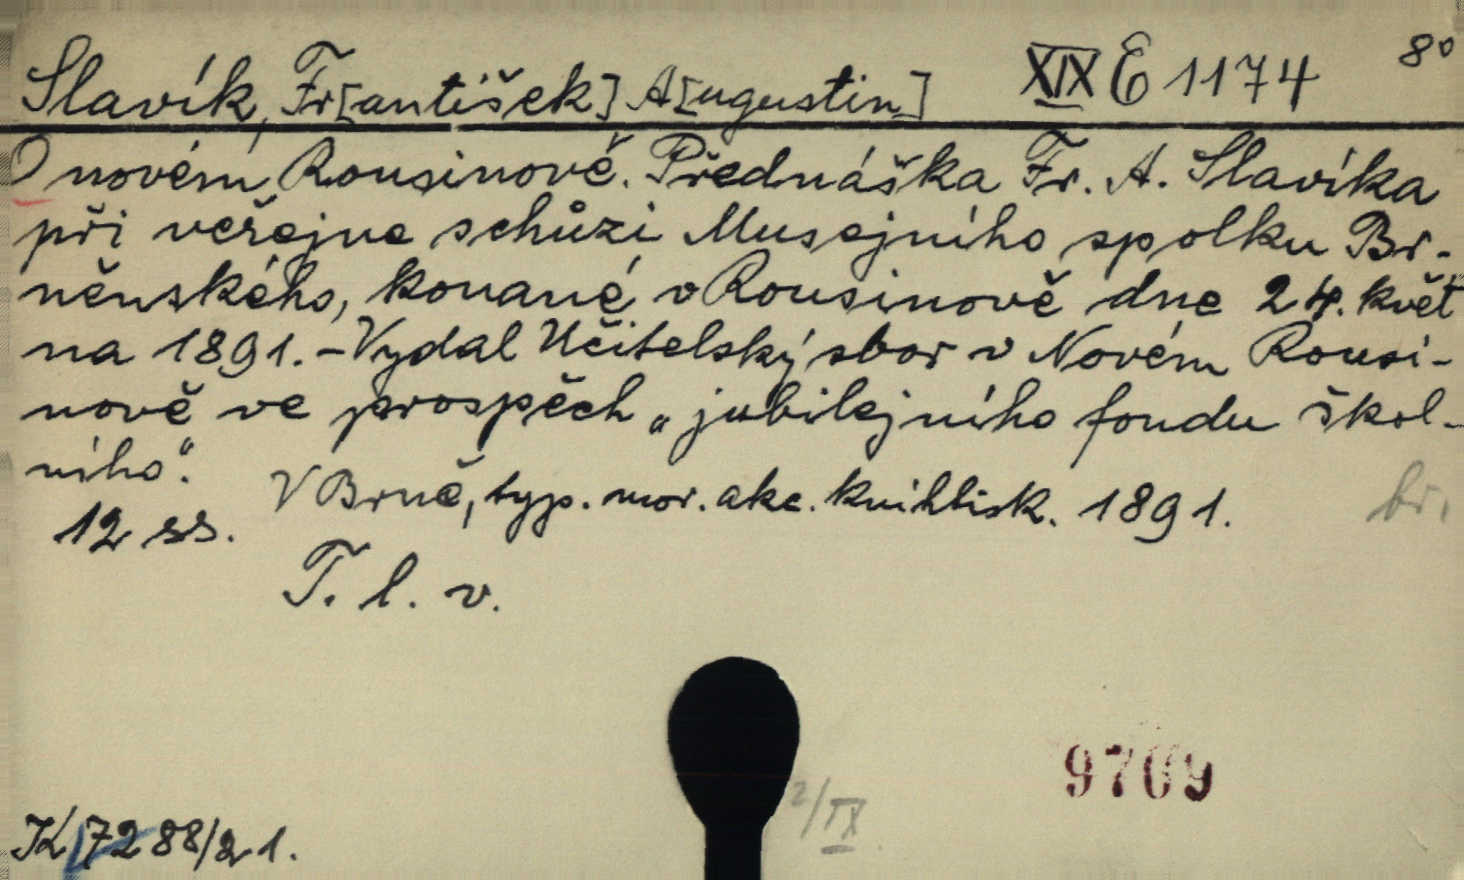 Slavík, Fr[antišek] A[ugustin] XIX E 1174 8°
O novém Rousinově. Přednáška Fr. A. Slavíka
při veřejne schůzi Musejního spolku Br-
něnského, konané v Rousinově dne 24. květ
na 1891. - Vydal Učitelský sbor v Novém Rousi-
nově ve prospěch „jubilejního fondu škol-
ního“.
V Brně, typ. mor. akc. knihtisk. 1891. br.
12 ss.
T. l. v.
9709
2/IX
K 7288/21.